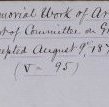 morial Work of Ar
t of Committee on Gr
epted August 9th 187
(V = 95)